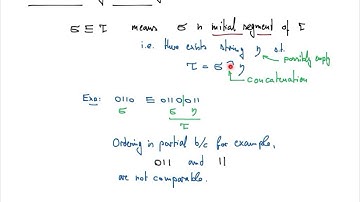 σ ⊑ τ means σ is initial segment of τ
i.e. there exists string η st.
possibly empty
τ = σ ⌢ η
concatenation
Exa: 0110 ⊑ 0110|011
σ σ η
τ
Ordering is partial b/c for example,
011 and 11
are not comparable.